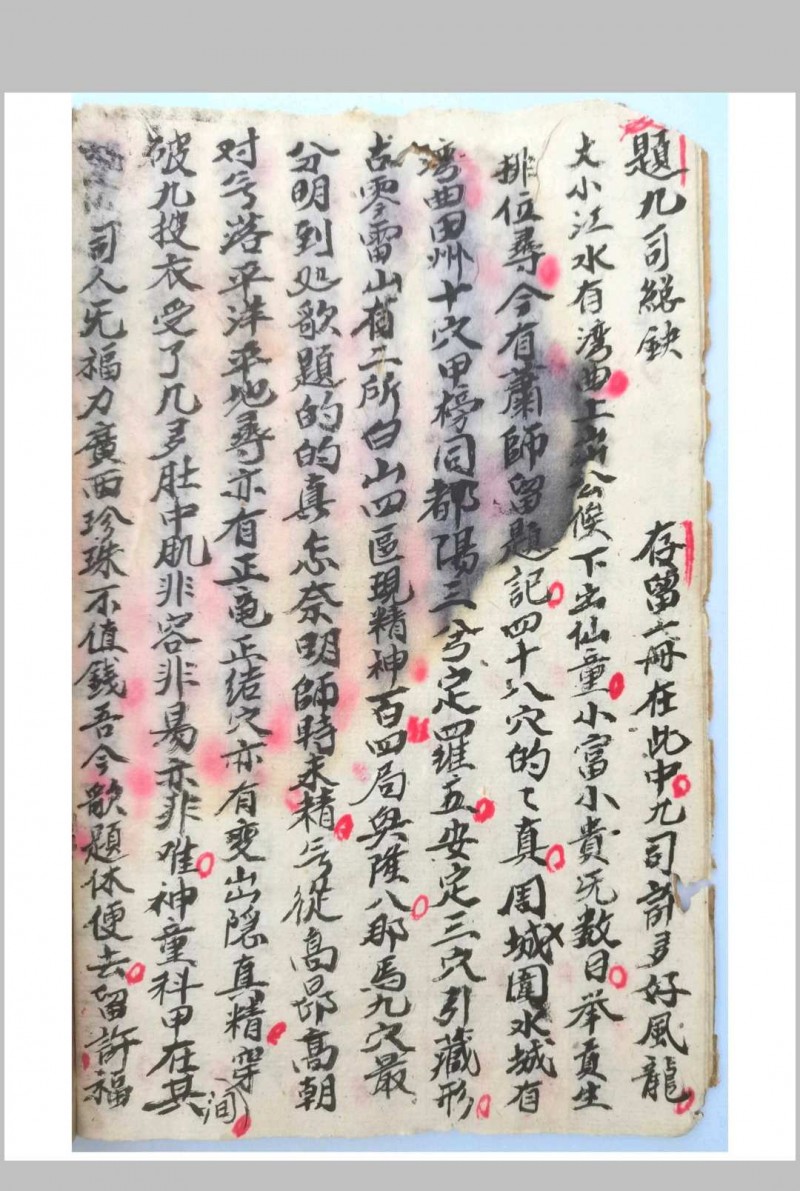 題九司總缺　存留一冊在此中九司許多好風龍
大小江水有湾曲上出公侯下出仙童小富小貴旡数目举貢生
排位尋今有蕭師留題記四十八穴的〻真周城圍水城有
湾曲田州十穴甲榜同都陽三兮定羅五安定三穴引藏形
古零雷山有二所白山四區現精神百四局與隆八那馬九穴最
分明到处歌題的的真怎奈明師時未精兮從高昂高朝
对兮落平洋平地尋亦有正龟正结穴亦有变出隐真精穿
破九搜衣受了几多肚中肌非容非易亦非难神童科甲在其间
司人旡福力廣西珍珠不值錢吾今歌題休便去留許福